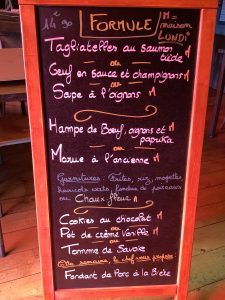 14€90
FORMULE
M =
maison
LUNDI
Tagliatelles au saumon
tiède
ou
Oeuf en sauce et champignons M
ou
Soupe à l'oignons M
Hampe de Boeuf, oignons et M
paprika
ou
Morue à l'ancienne M
Garnitures: Frites, riz, mogettes
haricots verts, fondue de poireaux
ou Choux fleur M
Cookies au chocolat M
ou
Pot de crème Vanille M
ou
Tomme de Savoie
Cette semaine, le chef vous propose:
Fondant de Porc à la Bière